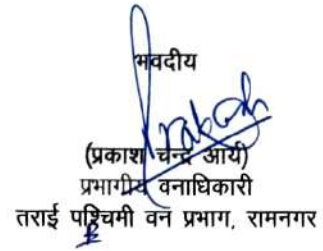 भवदीय
(प्रकाश चन्द्र आर्य)
प्रभागीय वनाधिकारी
तराई पश्चिमी वन प्रभाग, रामनगर